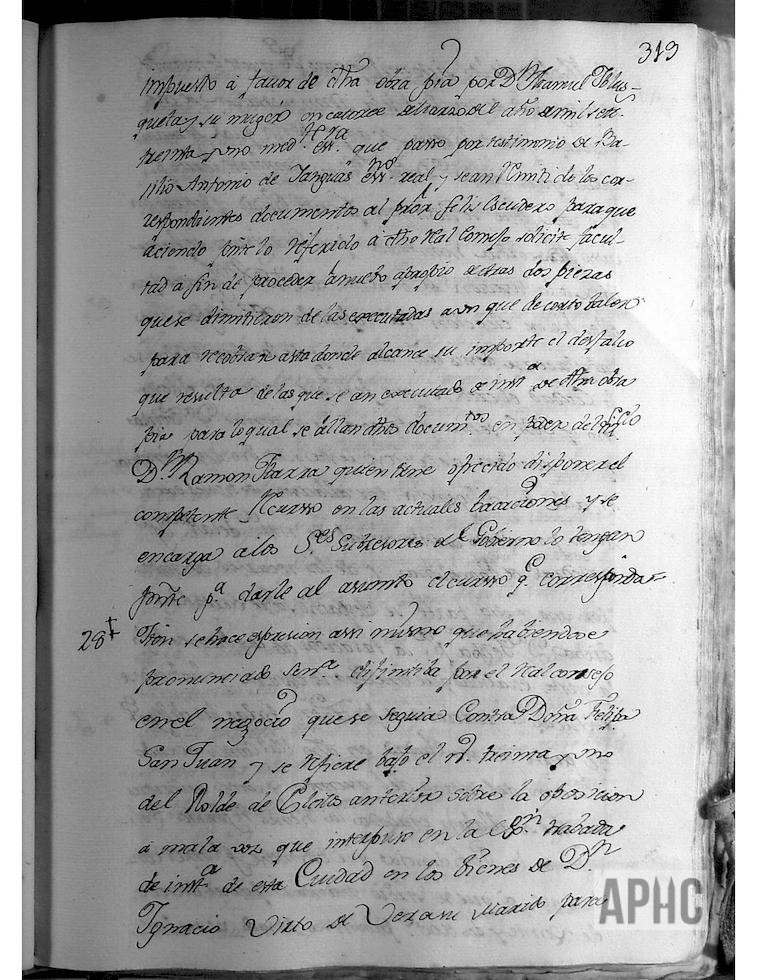 319
impuesto a favor de dha obra pia por Dn Manuel Iblus-
queta, y su muger en catorze de marzo del año de mil set.
treinta y uno medte esra que passo por testimonio de Ba-
silio Antonio de Tanguas essno real y sean Remitido los cor-
respondientes documentos al pror Felix Escudero para que
aciendo pnte lo referido a dho Real Consejo solicite facul-
tad a fin de proceder a nuebo apropio de otras dos piezas
que se dimitieron de las executadas aun que de corto balor
para recobrar asta donde alcance su importe el desfalco
que resulta de las que se an executado de insta de dha obra
pia para lo qual se allan dhos documtos en poder del
Dn Ramon Ibarra quien tiene ofrecido disponer el
competente Recurso en las actuales bacaciones y se
encarga a los Ses Subcesores del Gobierno lo tengan
pnte pa darle al asunto el curso q corresponda
28 Itten se hace espresion assi mismo que habiendose
pronunciado senta difinitiba por el Real consejo
en el negozio que se seguia Contra Doña Felipa
San Juan y se refiere bajo el no treinta y uno
del Rolde de Pleitos anterior sobre la oposicion
a mala voz que interpuso en la eson trabada
de insta de esta Ciudad en los bienes de Dn
Ignacio Virto de Vera su Marido para
APHC